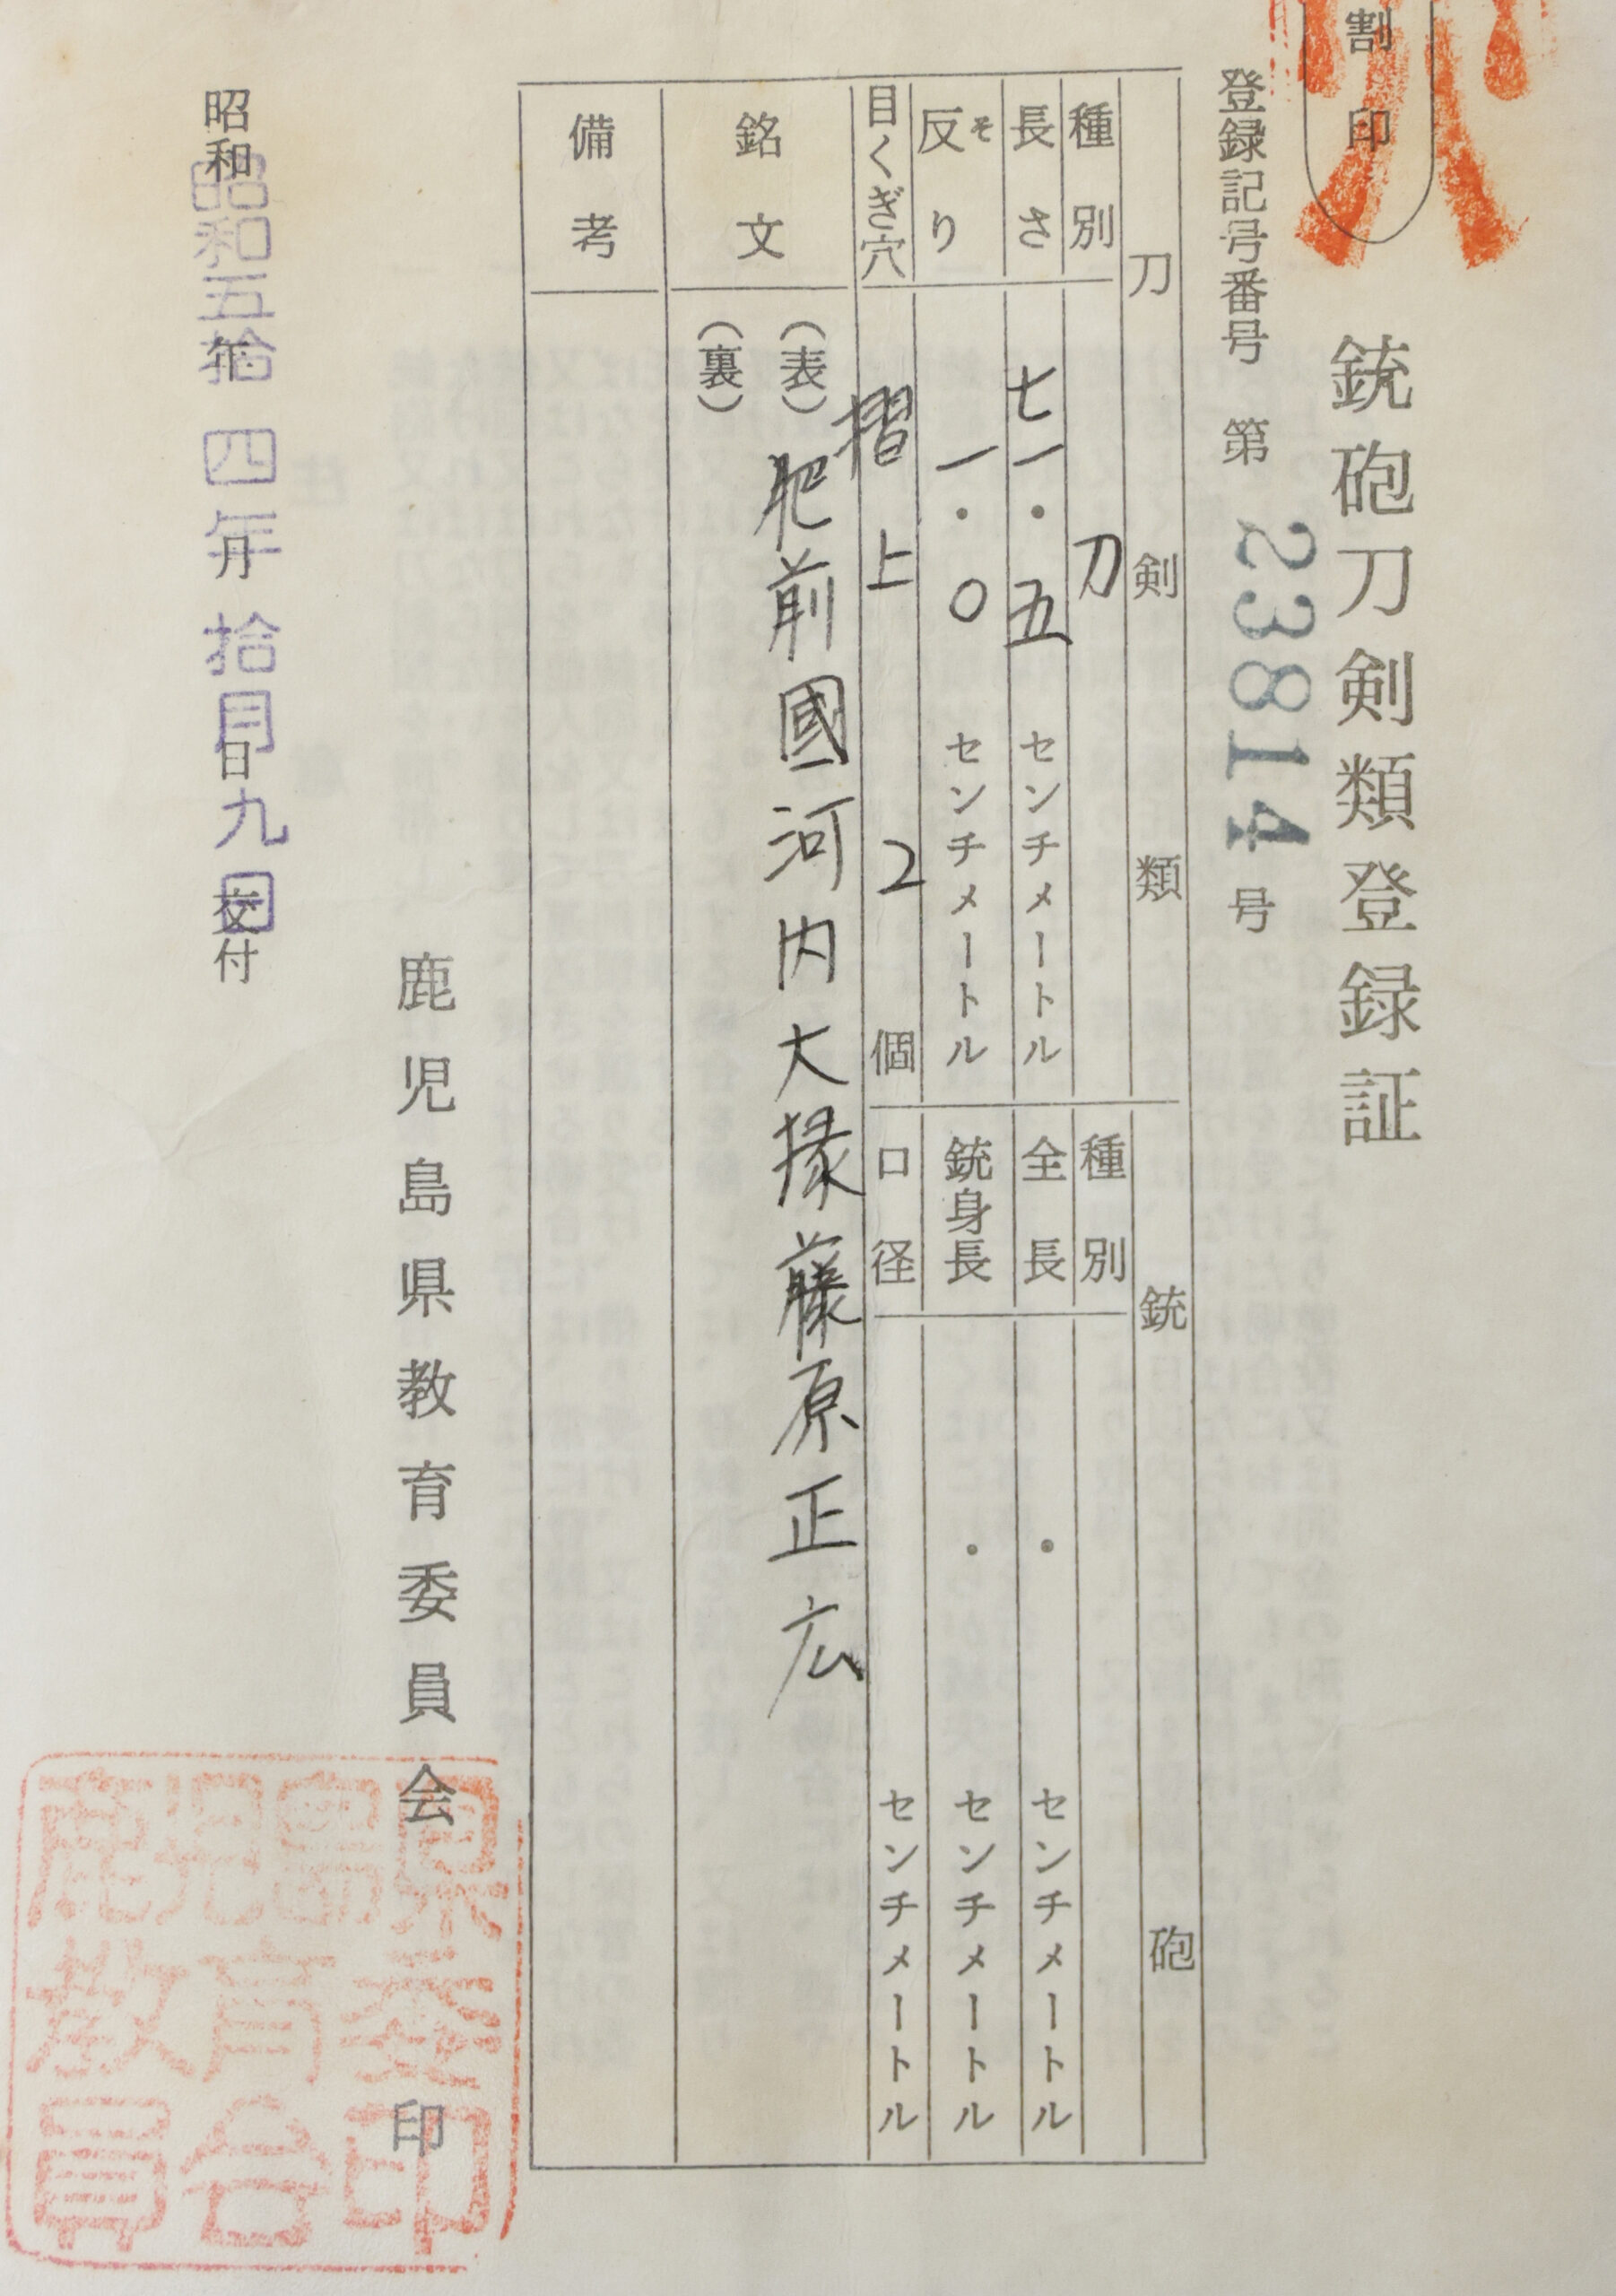 割印
銃砲刀剣類登録証
登録記号番号 第 23814 号
刀剣類
種別 刀
長さ 七一・五 センチメートル
反り そ 一・〇 センチメートル
目くぎ穴 摺上 2 個
銃砲
種別
全長 ・ センチメートル
銃身長 ・ センチメートル
口径 センチメートル
銘文
(表) 肥前國河内大掾藤原正広
(裏)
備考
鹿児島県教育委員会 印
鹿児島県教育委員会印
昭和 年 月 日 交付
昭和五拾四年拾月九日